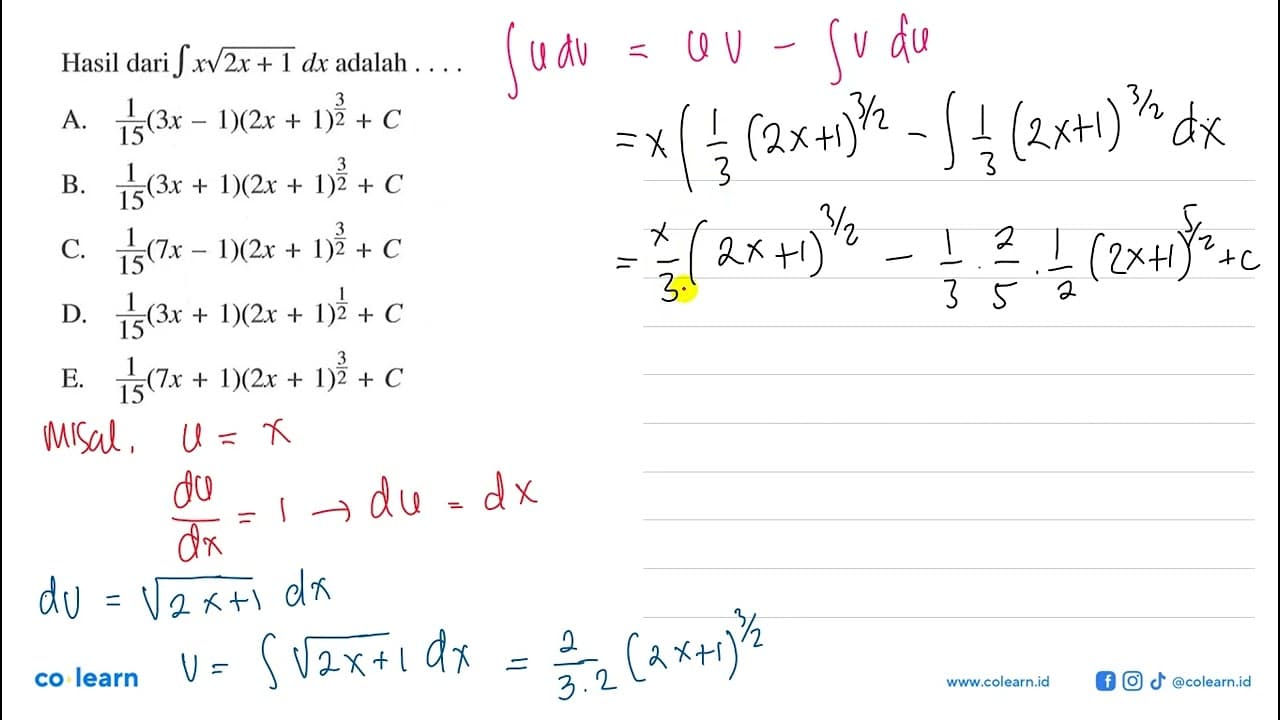 Hasil dari ∫ x√(2x + 1) dx adalah . . . .
A. 1/15 (3x − 1)(2x + 1)^(3/2) + C
B. 1/15 (3x + 1)(2x + 1)^(3/2) + C
C. 1/15 (7x − 1)(2x + 1)^(3/2) + C
D. 1/15 (3x + 1)(2x + 1)^(1/2) + C
E. 1/15 (7x + 1)(2x + 1)^(3/2) + C
∫ u dv = u v − ∫ v du
= x ( 1/3 (2x+1)^(3/2) − ∫ 1/3 (2x+1)^(3/2) dx
= x/3. (2x+1)^(3/2) − 1/3 . 2/5 . 1/2 (2x+1)^(5/2) + c
Misal, u = x
du/dx = 1 → du = dx
dv = √(2x+1) dx
v = ∫ √(2x+1) dx = 2/(3.2) (2x+1)^(3/2)
co learn
www.colearn.id
@colearn.id